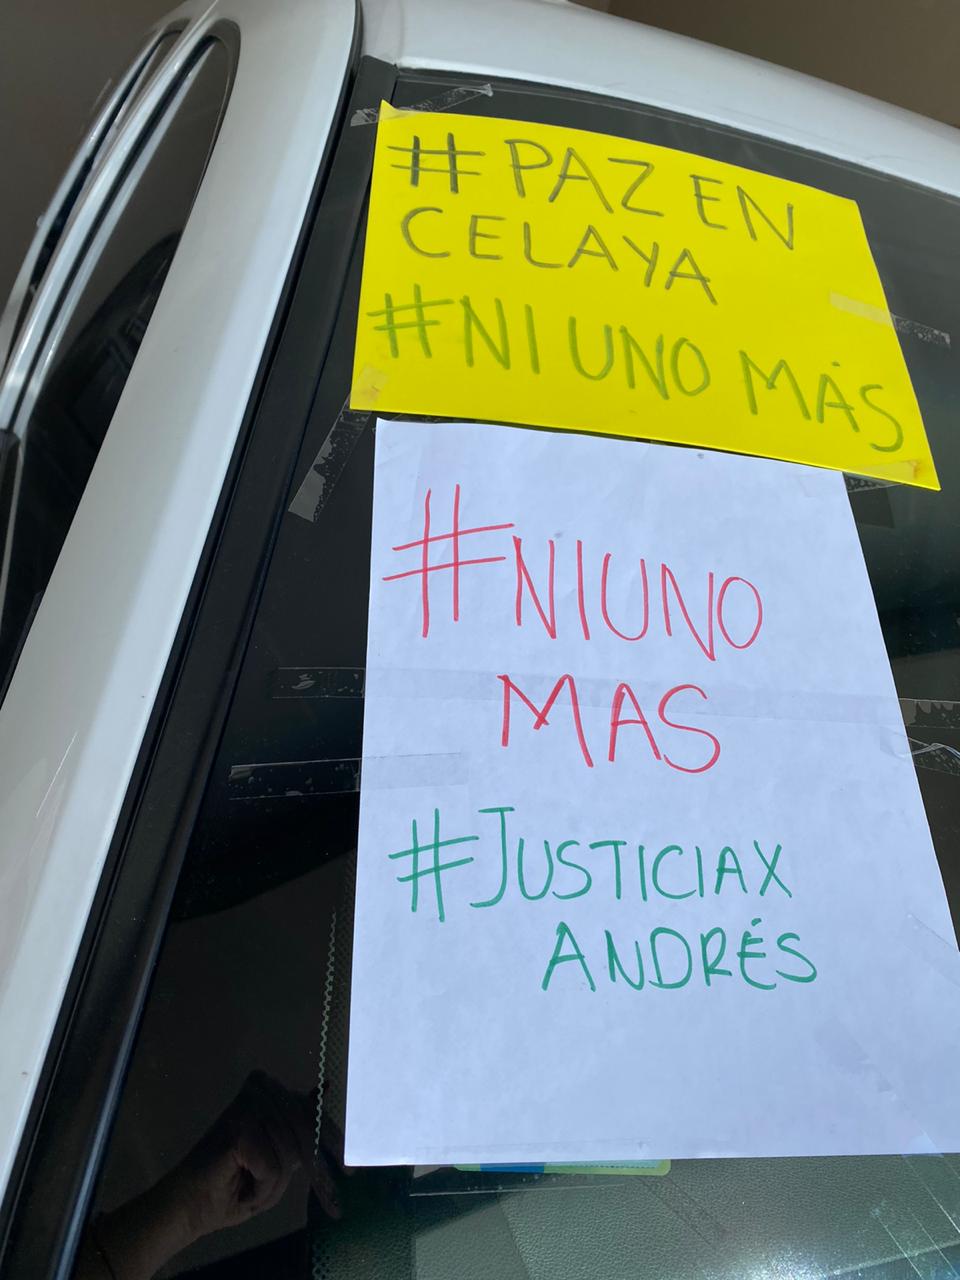 # PAZ EN
CELAYA
#NI UNO MÁS
#NIUNO
MAS
#JUSTICIAX
ANDRÉS